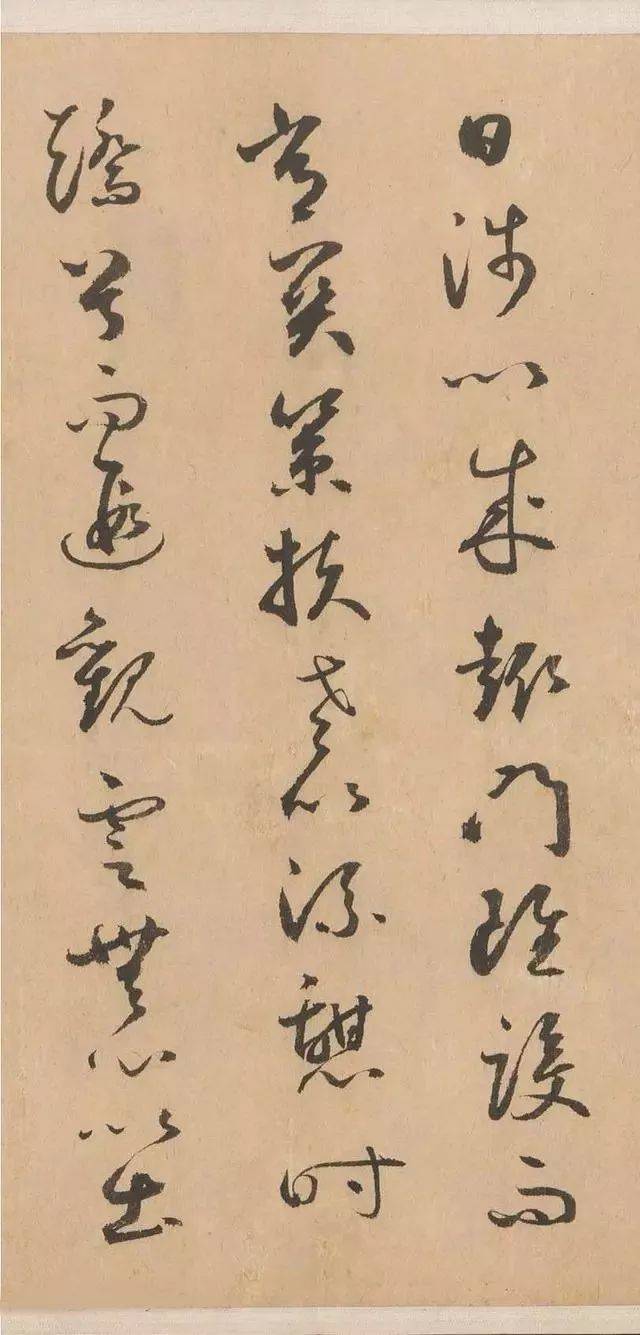 日涉以成趣門雖設而
常關策扶老以流憩時
矯首而遐觀雲無心以出